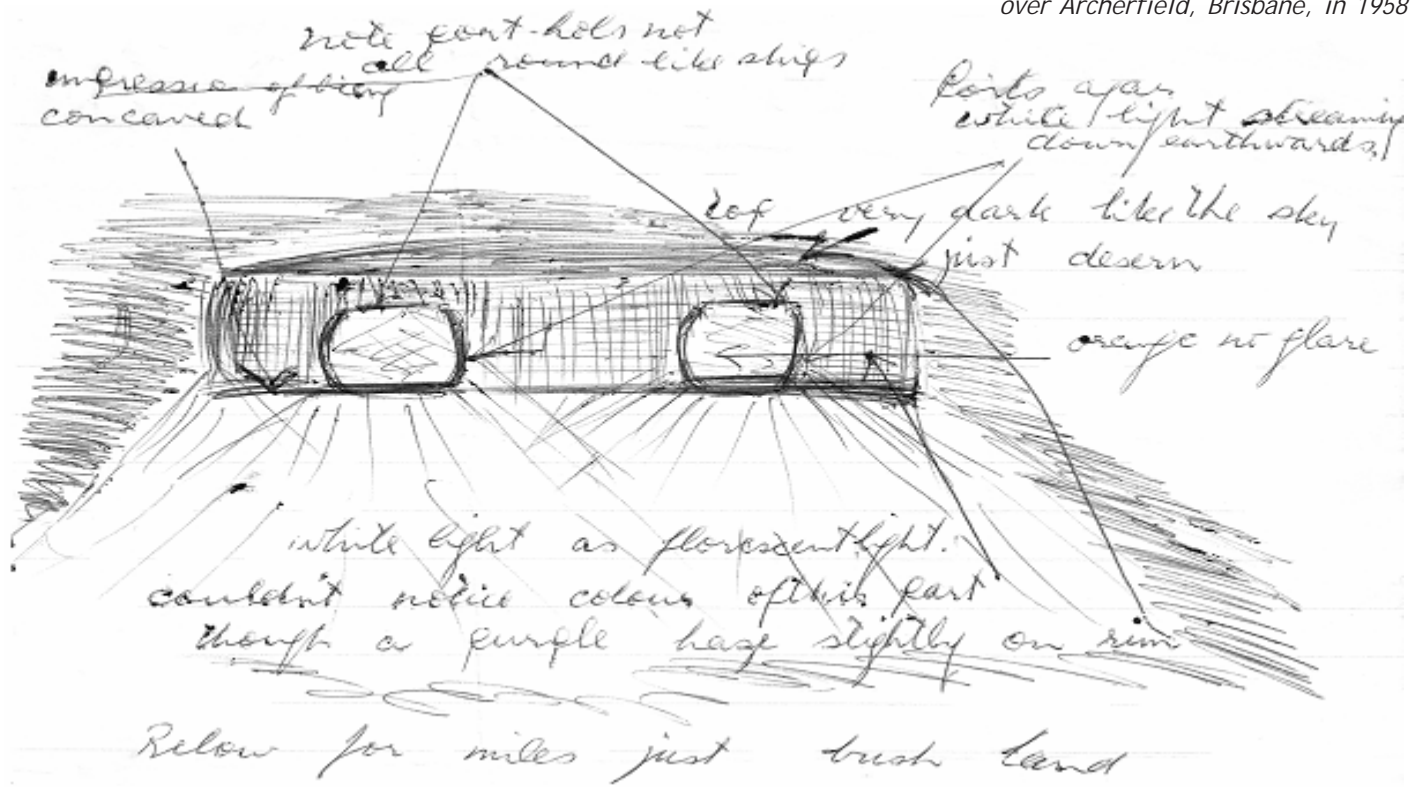 over Archerfield, Brisbane, in 1958
note port-hols not
all round like ships
impression of being
concaved
Ports ajar
white light streaming
down earthwards
top very dark like the sky
just desern
orange no flare
white light as florescent light.
couldn't notice colour of this part
though a purple haze slightly on rim
Below for miles just bush land